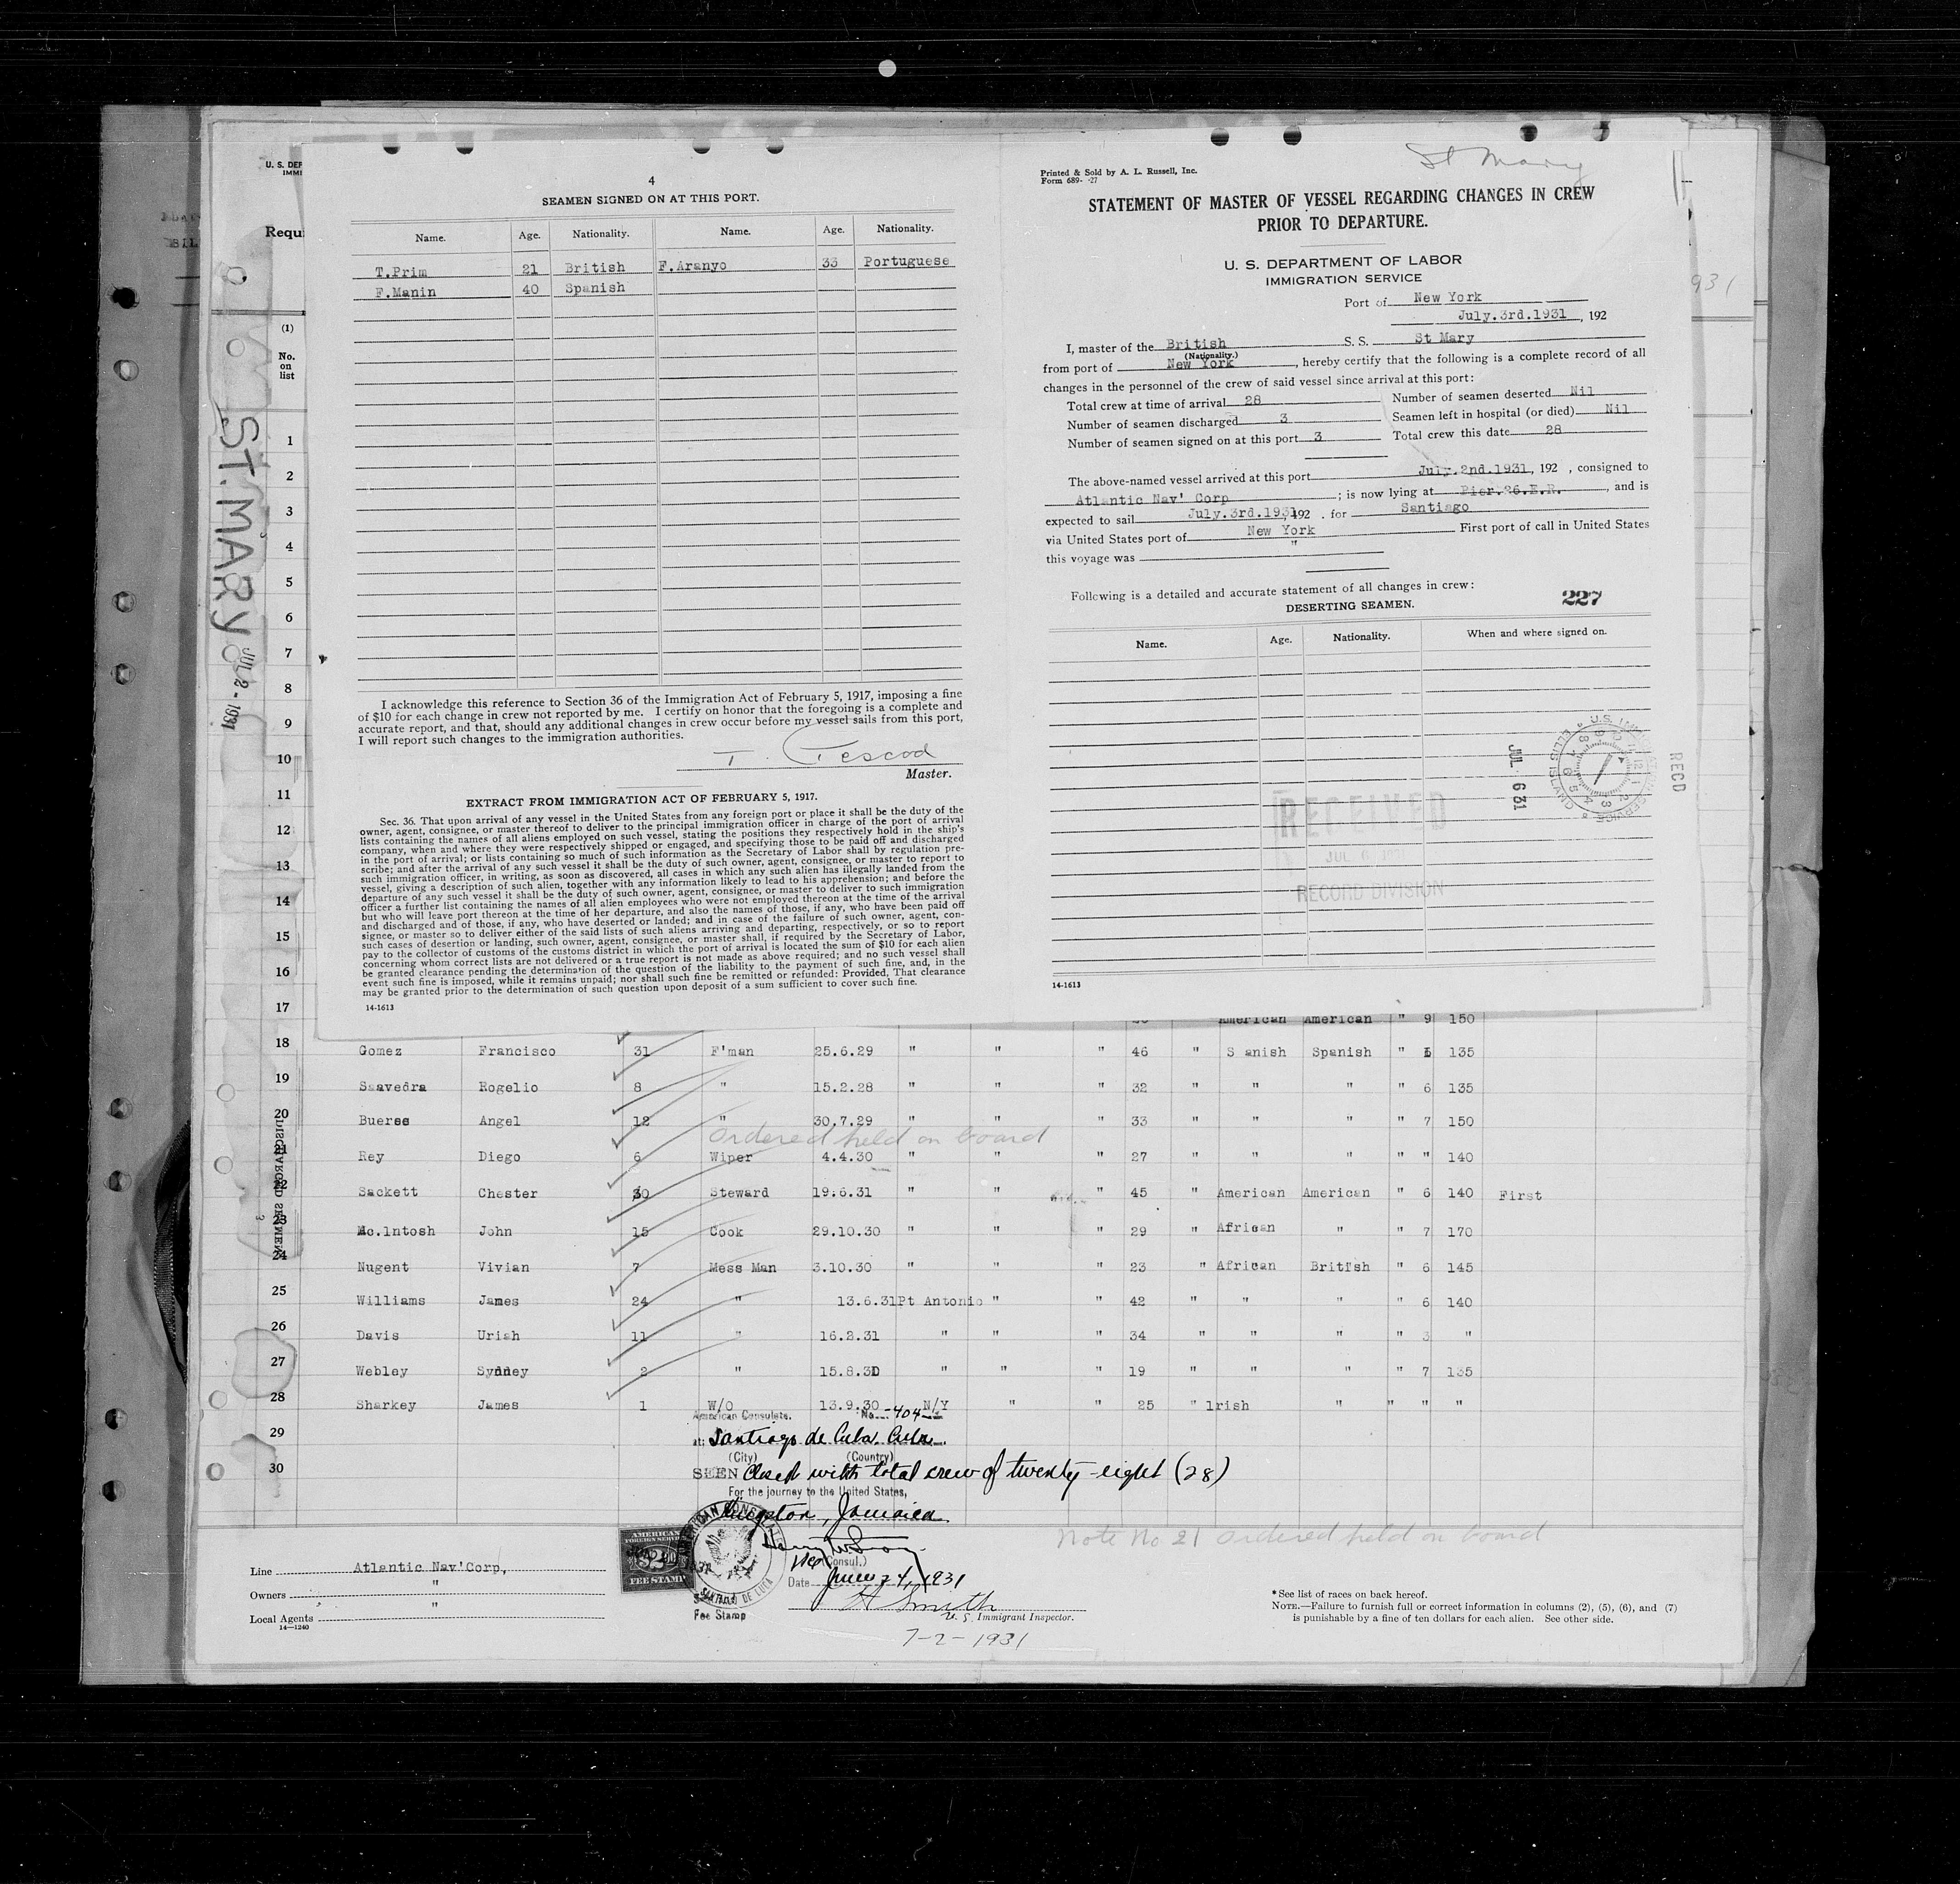 4
SEAMEN SIGNED ON AT THIS PORT.
Name. Age. Nationality. Name. Age. Nationality.
T.Prim 21 British F.Aranyo 33 Portuguese
F.Manin 40 Spanish
I acknowledge this reference to Section 36 of the Immigration Act of February 5, 1917, imposing a fine
of $10 for each change in crew not reported by me. I certify on honor that the foregoing is a complete and
accurate report, and that, should any additional changes in crew occur before my vessel sails from this port,
I will report such changes to the immigration authorities.
Master.
EXTRACT FROM IMMIGRATION ACT OF FEBRUARY 5, 1917.
Sec. 36. That upon arrival of any vessel in the United States from any foreign port or place it shall be the duty of the
owner, agent, consignee, or master thereof to deliver to the principal immigration officer in charge of the port of arrival
lists containing the names of all aliens employed on such vessel, stating the positions they respectively hold in the ship's
company, when and where they were respectively shipped or engaged, and specifying those to be paid off and discharged
in the port of arrival; or lists containing so much of such information as the Secretary of Labor shall by regulation pre-
scribe; and after the arrival of any such vessel it shall be the duty of such owner, agent, consignee, or master to report to
such immigration officer, in writing, as soon as discovered, all cases in which any such alien has illegally landed from the
vessel, giving a description of such alien, together with any information likely to lead to his apprehension; and before the
departure of any such vessel it shall be the duty of such owner, agent, consignee, or master to deliver to such immigration
officer a further list containing the names of all alien employees who were not employed thereon at the time of the arrival
but who will leave port thereon at the time of her departure, and also the names of those, if any, who have been paid off
and discharged and of those, if any, who have deserted or landed; and in case of the failure of such owner, agent, con-
signee, or master so to deliver either of the said lists of such aliens arriving and departing, respectively, or so to report
such cases of desertion or landing, such owner, agent, consignee, or master shall, if required by the Secretary of Labor,
pay to the collector of customs of the customs district in which the port of arrival is located the sum of $10 for each alien
concerning whom correct lists are not delivered or a true report is not made as above required; and no such vessel shall
be granted clearance pending the determination of the question of the liability to the payment of such fine, and, in the
event such fine is imposed, while it remains unpaid; nor shall such fine be remitted or refunded: Provided, That clearance
may be granted prior to the determination of such question upon deposit of a sum sufficient to cover such fine.
14-1613
St Mary
Printed & Sold by A. L. Russell, Inc.
Form 689- -27
STATEMENT OF MASTER OF VESSEL REGARDING CHANGES IN CREW
PRIOR TO DEPARTURE.
U. S. DEPARTMENT OF LABOR
IMMIGRATION SERVICE
Port of New York
July.3rd.1931, 192
I, master of the British S. S. St Mary
(Nationality.)
from port of New York, hereby certify that the following is a complete record of all
changes in the personnel of the crew of said vessel since arrival at this port:
Total crew at time of arrival 28 Number of seamen deserted Nil
Number of seamen discharged 3 Seamen left in hospital (or died) Nil
Number of seamen signed on at this port 3 Total crew this date 28
The above-named vessel arrived at this port July.2nd.1931, 192 , consigned to
Atlantic Nav' Corp ; is now lying at Pier.26.E.R. , and is
expected to sail July.3rd.1931, 192 . for Santiago
via United States port of New York First port of call in United States
this voyage was "
Following is a detailed and accurate statement of all changes in crew:
227
DESERTING SEAMEN.
Name. Age. Nationality. When and where signed on.
RECEIVED
JUL 6
RECORD DIVISION
JUL 6 31
U.S. IMMIGRATION SERVICE
ELLIS ISLAND
RECD
14-1613
U. S. DEP
IMMI
Requi
931
(1)
No.
on
list
ST. MARY
JUL 2 - 1931
1
2
3
4
5
6
7
8
9
10
11
12
13
14
15
16
17 American American " 9 150
18 Gomez Francisco 31 F'man 25.6.29 " " " 46 " S anish Spanish " 135
19 Saavedra Rogelio 8 " 15.2.28 " " " 32 " " " " 6 135
20 Buerse Angel 12 " 30.7.29 " " " 33 " " " " 7 150
Ordered held on board
21 Rey Diego 6 Wiper 4.4.30 " " " 27 " " " " " 140
22 Sackett Chester 30 Steward 19.6.31 " " " 45 " American American " 6 140 First
23 Mc.lntosh John 15 Cook 29.10.30 " " " 29 " African " " 7 170
24 Nugent Vivian 7 Mess Man 3.10.30 " " " 23 " African British " 6 145
25 Williams James 24 " 13.6.31 Pt Antonio " " 42 " " " " 6 140
26 Davis Uriah 11 " 16.2.31 " " " 34 " " " " 3 "
27 Webley Sydney 2 " 15.8.30 " " " 19 " " " " 7 135
28 Sharkey James 1 W/O 13.9.30 N/Y " " 25 " lrish " " " "
29
30
DISCHARGED SEAMEN 3
American Consulate. No. 404
at: Santiago de Cuba. Cuba.
(City) (Country)
SEEN Closed with total crew of twenty-eight (28)
For the journey to the United States,
Kingston, Jamaica
(Consul.)
Date June 24, 1931
AMERICAN FOREIGN SERVICE
$2
FEE STAMP
AMERICAN CONSULATE
SANTIAGO DE CUBA
Fee Stamp
H Smith
U. S. Immigrant Inspector.
7-2-1931
Note No 21 ordered held on board
Line Atlantic Nav'Corp,
Owners "
Local Agents "
14—1240
* See list of races on back hereof.
NOTE.—Failure to furnish full or correct information in columns (2), (5), (6), and (7)
is punishable by a fine of ten dollars for each alien. See other side.